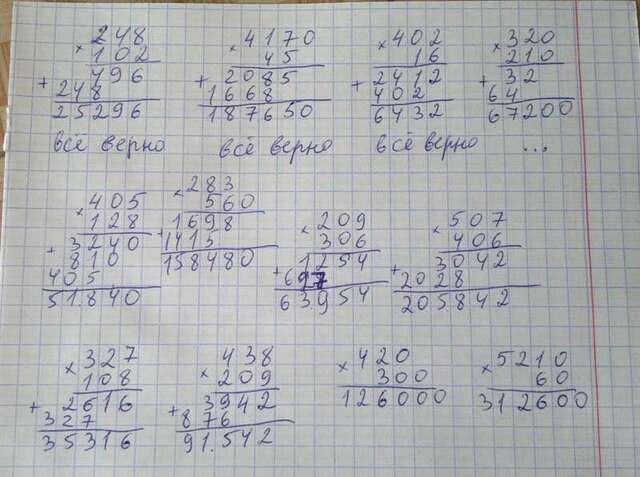 248 4170 402 320
× 102 × 45 × 16 × 210
496 2085 2412 32
+ 248 + 1668 + 402 + 64
25296 187650 6432 67200
всё верно всё верно всё верно ...
405 283
× 128 × 560
3240 1698
+ 810 + 1415
405 158480
51.840
209 507
× 306 × 406
1254 3042
+ 627 + 2028
63.954 205842
327 438 420 5210
× 108 × 209 × 300 × 60
2616 3942 126000 312600
+ 327 + 876
35316 91.542